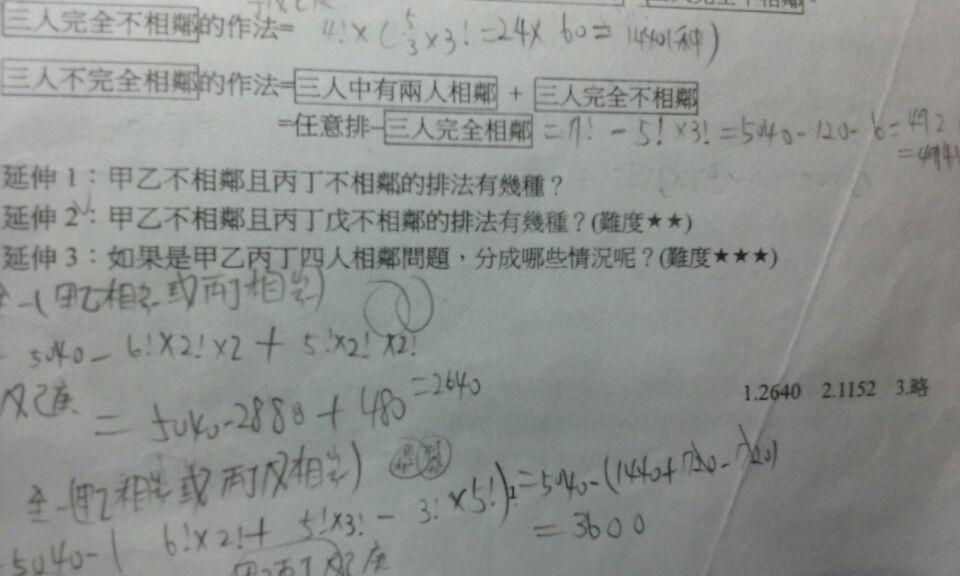 三人完全不相鄰的作法= 4!×C⁵₃×3!=24×60=1440(種)
三人不完全相鄰的作法=三人中有兩人相鄰 + 三人完全不相鄰
=任意排-三人完全相鄰 =7!-5!×3!=5040-120-6=492
延伸 1:甲乙不相鄰且丙丁不相鄰的排法有幾種?
延伸 2:甲乙不相鄰且丙丁戊不相鄰的排法有幾種?(難度★★)
延伸 3:如果是甲乙丙丁四人相鄰問題,分成哪些情況呢?(難度★★★)
全-(甲乙相 或丙丁相)
5040-6!×2!×2+5!×2!×2!
=5040-2880+480=2640
1.2640 2.1152 3.略
全-(甲乙相 或丙丁戊相)
5040-( 6!×2!+5!×3!-3!×5!)=5040-(1440+720-720)
=3600